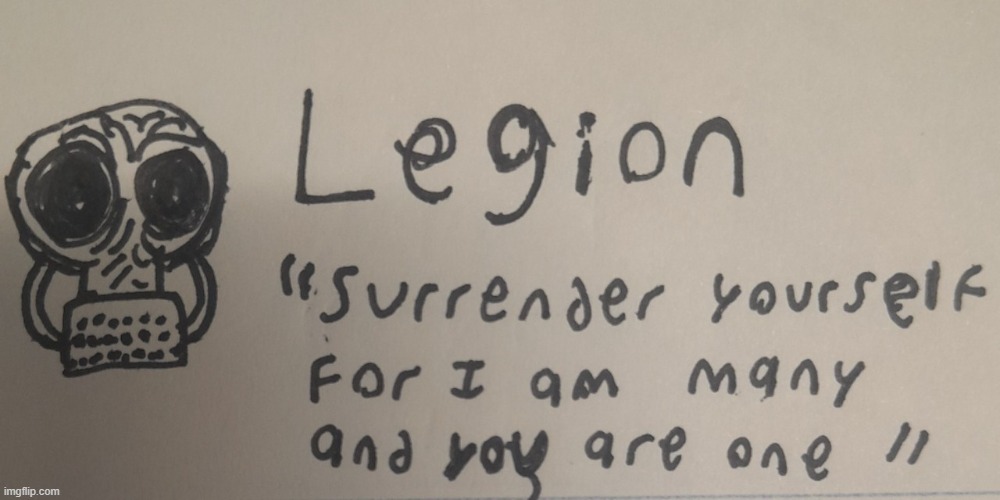 Legion
"Surrender yourself
For I am many
and you are one"
imgflip.com